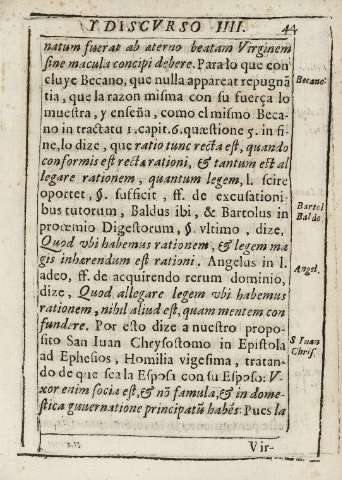 Y DISCVRSO IIII. 44
natum fuerat ab æterno beatam Virginem
sine macula concipi debere. Para lo que con
cluye Becano, que nulla appareat repugnã
tia, que la razon misma con su fuerça lo
muestra, y enseña, como el mismo Beca
no in tractatu 1. capit. 6. quæstione 5. in fi
ne, lo dize, que ratio tunc recta est, quando
conformis est rectæ rationi, & tantum est al
legare rationem, quantum legem, l. scire
oportet, §. sufficit, ff. de excusationi
bus tutorum, Baldus ibi, & Bartolus in
proœmio Digestorum, §. vltimo, dize,
Quod vbi habemus rationem, & legem ma
gis inherendum est rationi, Angelus in l.
adeo, ff. de acquirendo rerum dominio,
dize, Quod allegare legem vbi habemus
rationem, nihil aliud est, quam mentem con
fundere. Por esto dize a nuestro propo
sito San Iuan Chrysostomo in Epistola
ad Ephesios, Homilia vigesima, tratan
do de que sea la Esposa con su Esposo: V-
xor enim socia est, & nõ famula, & in dome-
stica guuernatione principatũ habēs. Pues la
Vir-
Becano.
Bartol
Baldo
Angel.
S Iuan
Chris.